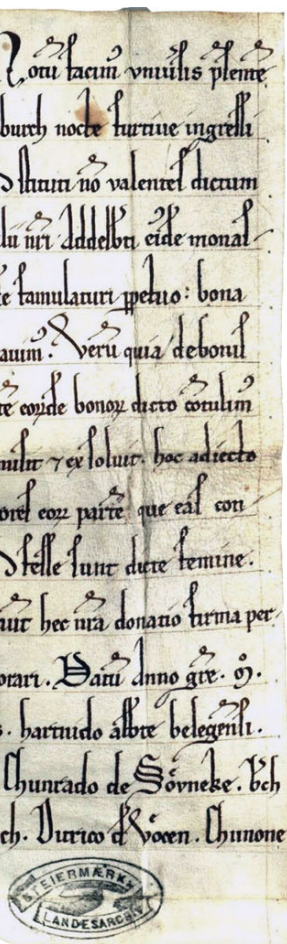 Notū facim̄ vniūsis p̄sente
burch nocte furtiue ingressi
stituti nō valentes dictum
nr̄i Addelb̄ti eidē monas-
famulaturi ꝑpetuo: bona
Verū quia de bonis
eorūde bonoꝝ dicto cōtulim
⁊ exsoluit. hoc adiecto
eoꝝ parte que eas con
sunt dicte femine.
uit hec nr̄a donatio firma per-
orari. Datū Anno gr̄e. M̊.
hartnido abb̄te belegēsi.
Chunrado de Sövneke. Vlch
ch. Ditrico de Vöcen. Chunone
STEIERMÆRK.
LANDESARCHIV